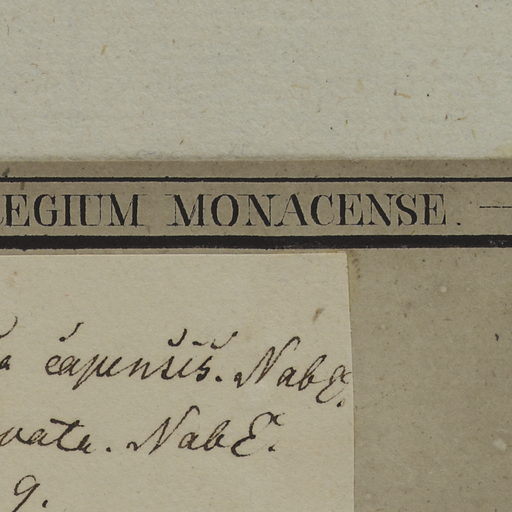 EGIUM MONACENSE. —
a capensis. NabE.
vata. NabE.
9.